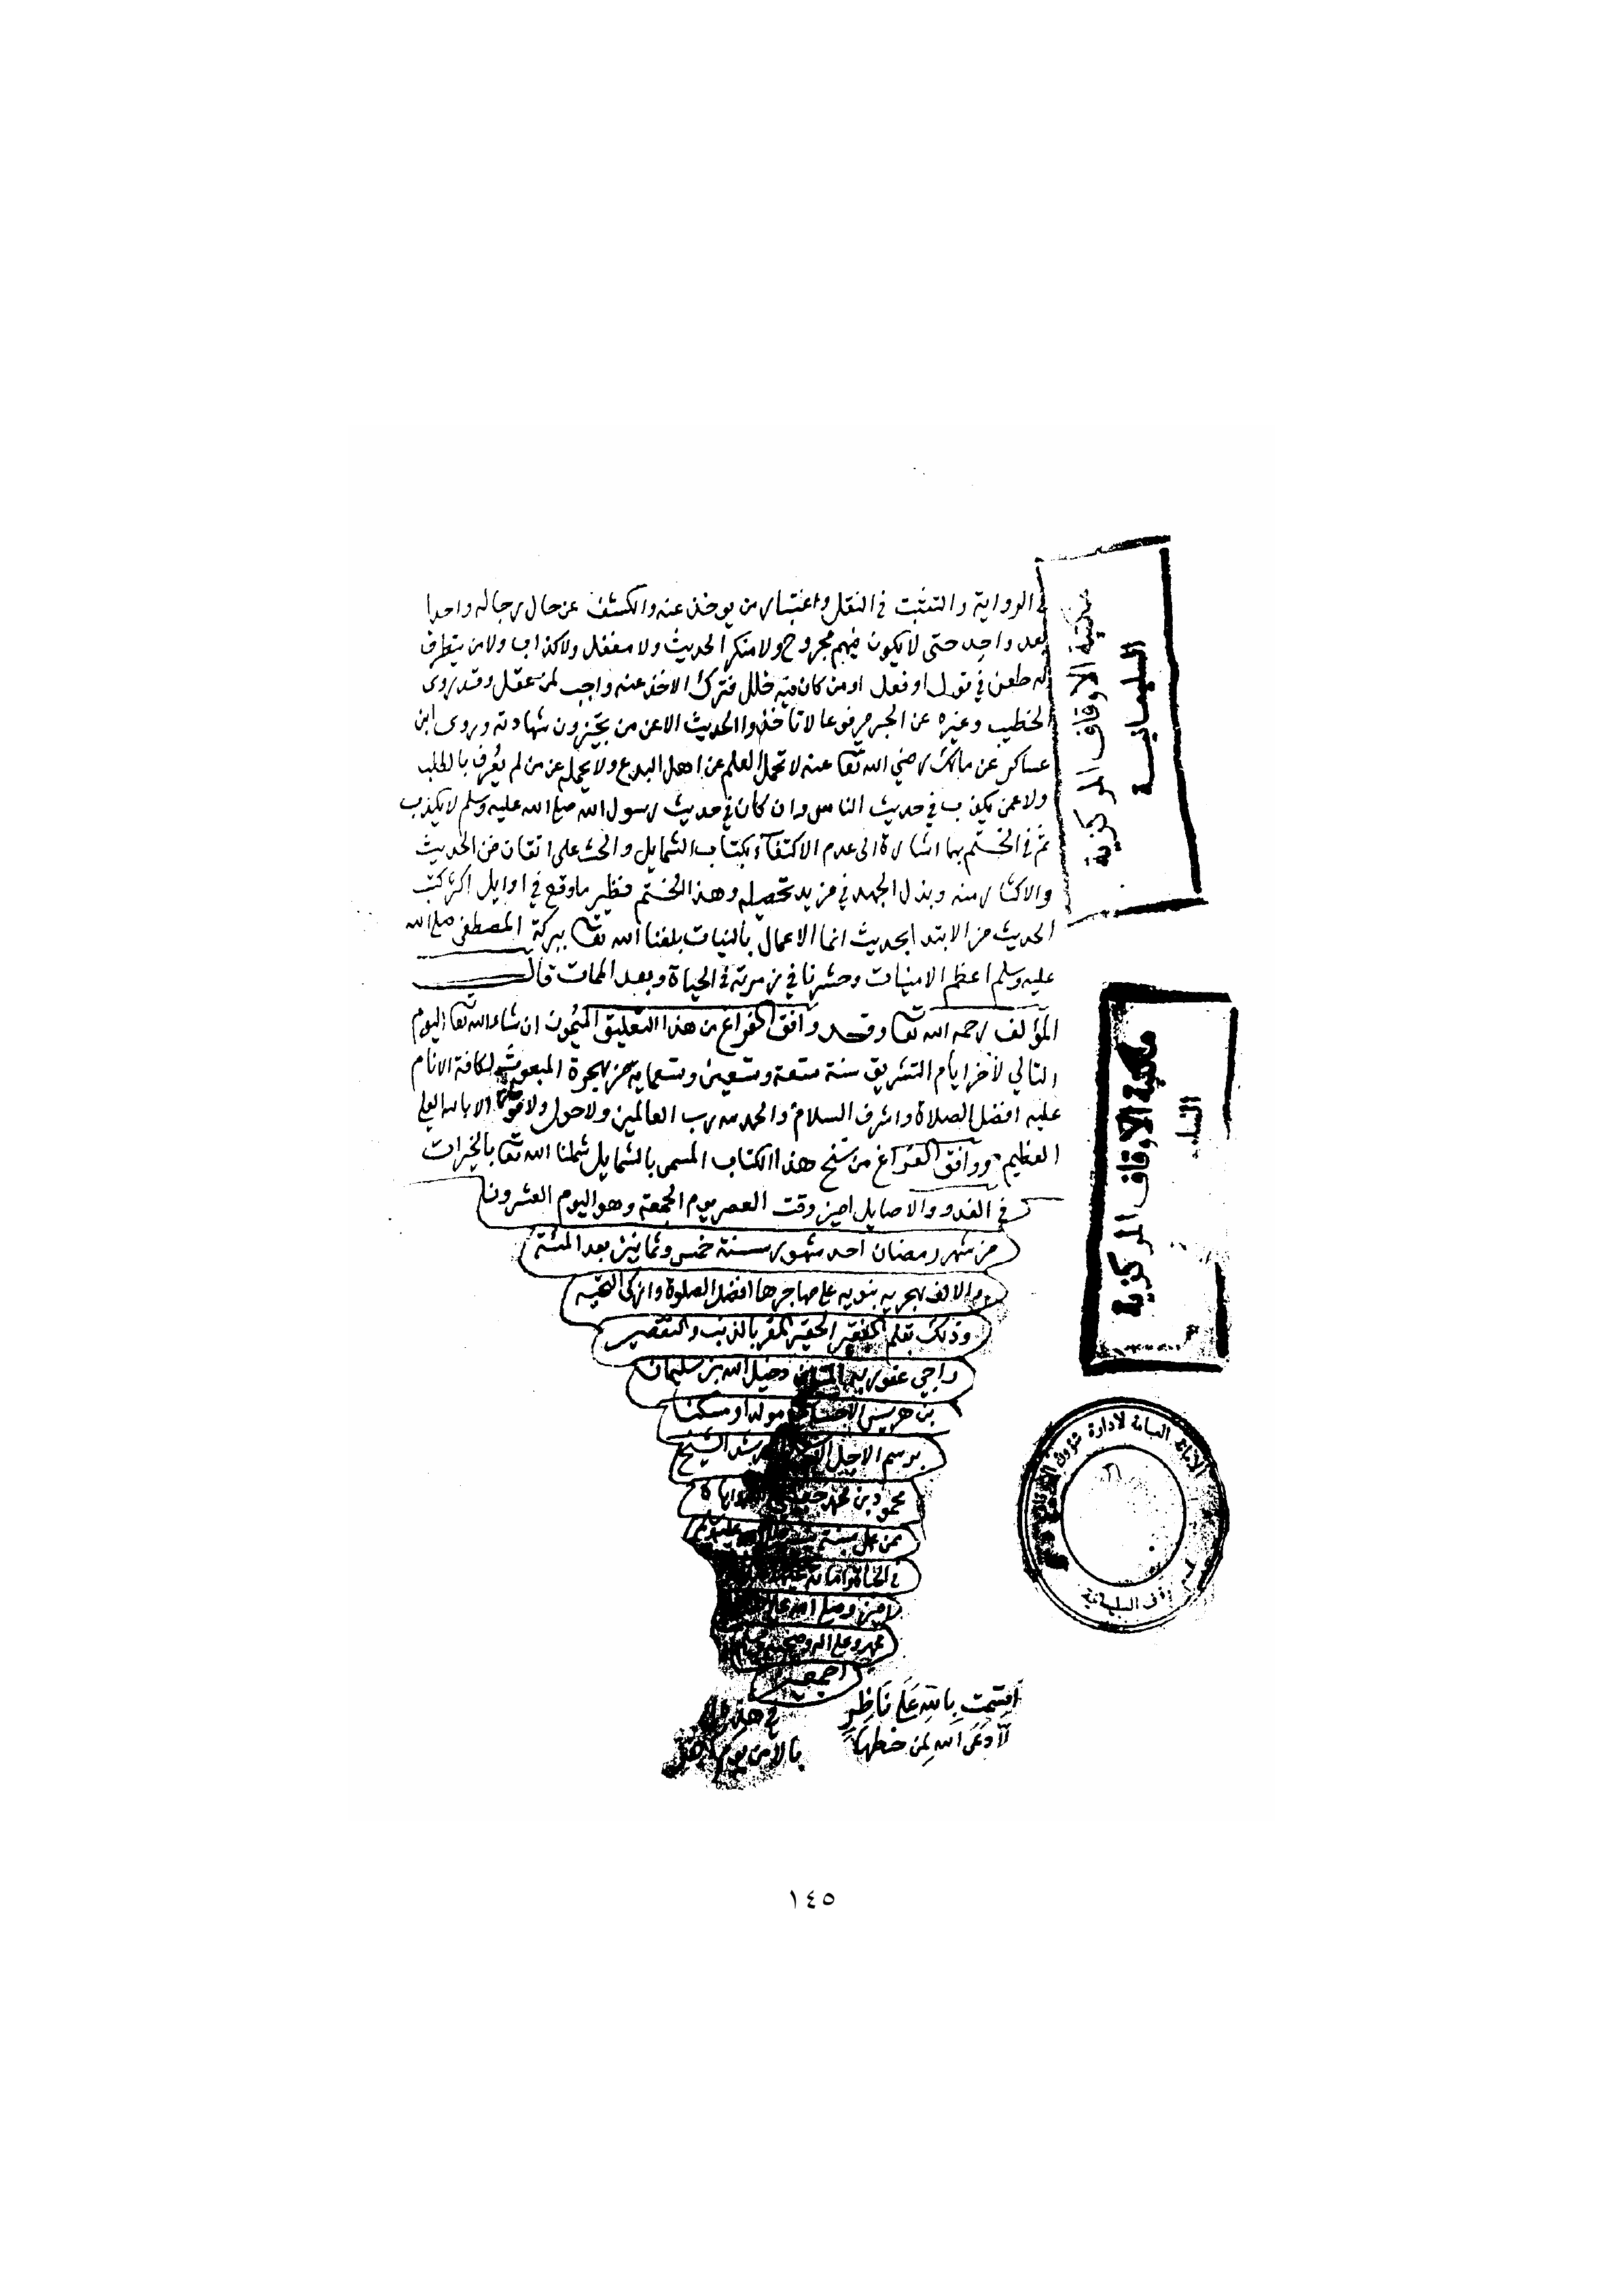 في الرواية والتثبت في النقل واعتبار من يوخذ عنه والكشف عن حال رجاله واحدا
بعد واحد حتى لا يكون فيهم مجروح ولا منكر الحديث ولا مغفل ولا كذاب ولا من يتطرق
له طعن في قول او فعل او من كان فيه خلل فترك الاخذ عنه واجب لمن عقل وقد روى
الخطيب وغيره عن الحبر مرفوعا لا تأخذوا الحديث الا عن من تجيزون شهادته وروى ابن
عساكر عن مالك رضي الله تعا عنه لا تحمل العلم عن اهل البدع ولا يحمله عن من لم يعرف بالطلب
ولا عمن يكذب في حديث الناس وان كان في حديث رسول الله صلى الله عليه وسلم لا يكذب
ثم في الختم بها اشارة الى عدم الاكتفاء بكتاب الشمايل والحث على اتقان فن الحديث
والاكثار منه وبذل الجهد في مزيد تحصيله وهذا الختم نظير ما وقع في اوايل اكثر كتب
الحديث من الابتدا بحديث انما الاعمال بالنيات بلغنا الله تعا ببركة المصطفى صلى الله
عليه وسلم اعظم الامنيات وحشرنا في زمرته في الحياة وبعد الممات قال
المؤلف رحمه الله تعا وقد وافق الفراغ من هذا التعليق الميمون ان شاء الله تعا اليوم
التالي لآخر ايام التشريق سنة تسعة وتسعين وتسعماية من هجرة المبعوث لكافة الانام
عليه افضل الصلاة واشرف السلام والحمد لله رب العالمين ولا حول ولا قوة الا بالله العلي
العظيم ووافق الفراغ من نسخ هذا الكتاب المسمى بالشمايل شملنا الله تعا بالخيرات
في الغدو والاصايل امين وقت العصر يوم الجمعة وهو اليوم العشرون
من شهر رمضان احد شهور سنة خمس وثمانين بعد المئة
والالف هجريه نبويه على مهاجرها افضل الصلوة وازكى التحيه
وذلك بقلم الفقير الحقير المقر بالذنب والتقصير
راجي عفو ربه دخيل الله بن سليمان
بن مولدا ومسكنا
برسم الاجل الشيخ
محمود بن محمد
من على سنة
في
امين وصلى الله على
محمد وعلى اله وصحبه
اجمعين
اقسمت بالله على ناظر
في هذه
الا دعى الله لمن خطها
بالامن يوم
مكتبة الاوقاف المركزية
السليمانية
مكتبة الاوقاف المركزية
الامانة العامة لادارة شؤون الاوقاف
السليمانية
١٤٥